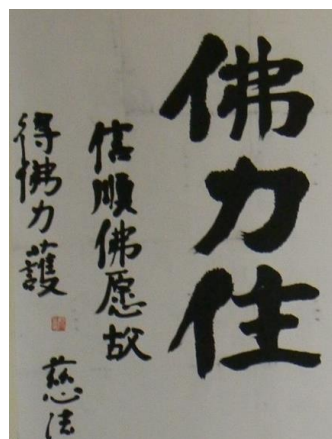 佛力住
信順佛愿故
得佛力護
慈法